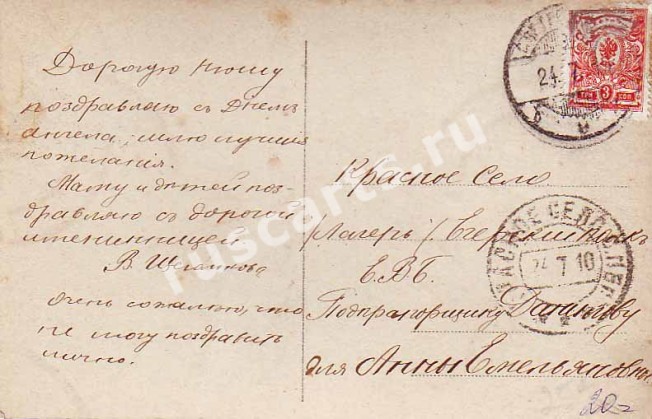 Дорогую Нюшу
поздравляю съ Днемъ
ангела, шлю лучшія
пожеланія.
Маму и дѣтей поз-
дравляю съ дорогой
имениницей
В.
очень сожалѣю, что
не могу поздравить
лично.
Красное Село
/Лагерь/
Е.В.Б.
Подпрапорщику
для Анны Емельяновны
24
ТРИ 3 КОП
КРАСНОЕ СЕЛО
24 7 10
20=
ruscarts.ru